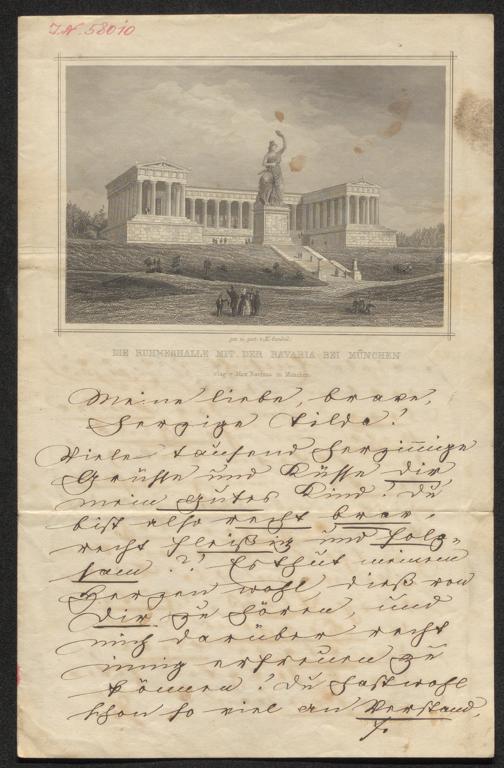 J.N. 58010
DIE RUHMESHALLE MIT DER BAVARIA BEI MÜNCHEN
Meine liebe, brave,
herzige Tilda!
Viele tausend herzinnige
Grüsse und Küsse dir
mein gutes Kind! Du
bist also recht brav,
recht fleißig und folg-
sam?! Es thut meinem
Herzen wohl, dieß von
Dir zu hören, und
mich darüber recht
innig erfreuen zu
können! Du hast wohl
schon so viel an Verstand,